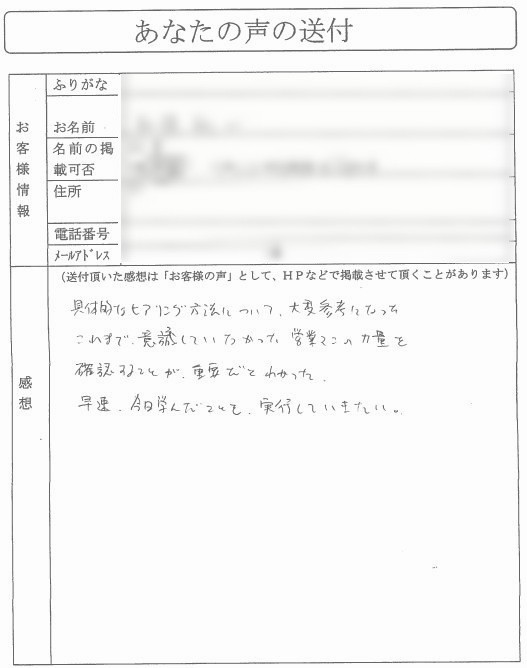 あなたの声の送付
お客様情報
ふりがな
お名前
名前の掲
載可否
住所
電話番号
メールアドレス
感想
(送付頂いた感想は「お客様の声」として、HPなどで掲載させて頂くことがあります)
具体的なヒアリング方法について、大変参考になった
これまで、意識していなかった 営業マンの力量を
確認することが、重要だとわかった。
早速、今日学んだことを、実行していきたい。